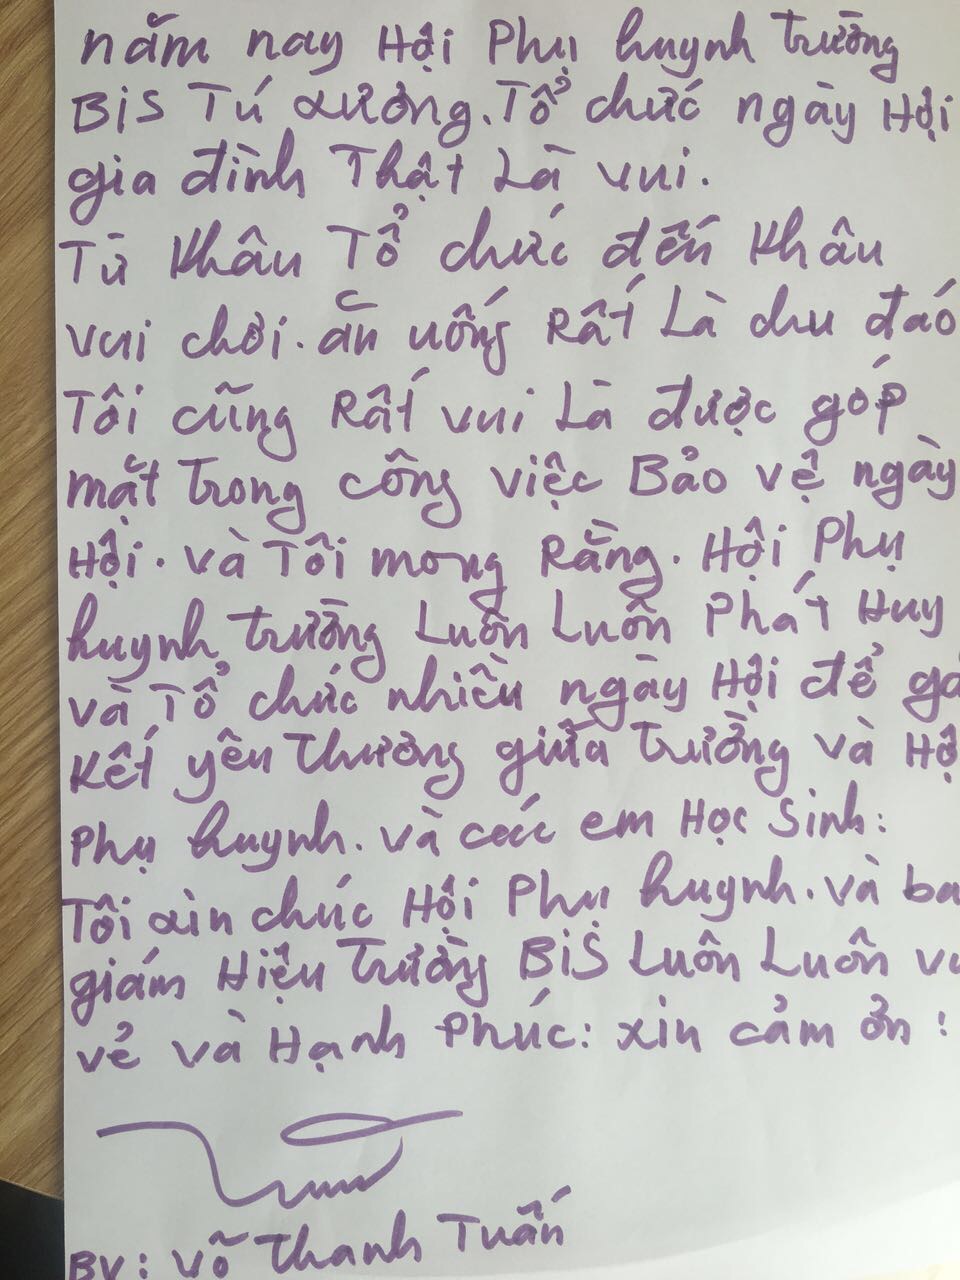 năm nay Hội Phụ huynh trường
BiS Tú xương. Tổ chức ngày Hội
gia đình Thật Là vui.
Từ khâu Tổ chức đến khâu
vui chơi. ăn uống Rất Là chu đáo
Tôi cũng Rất vui Là được góp
mặt trong công việc Bảo vệ ngày
Hội. và Tôi mong Rằng. Hội Phụ
huynh trường Luôn Luôn Phát Huy
và Tổ chức nhiều ngày Hội để
Kết yêu thương giữa trường và
Phụ huynh. và các em Học Sinh:
Tôi xin chúc Hội Phụ huynh. và ba
giám Hiệu Trường BiS Luôn Luôn
vẻ và Hạnh Phúc: xin cảm ơn!
BV: Võ Thanh Tuấn